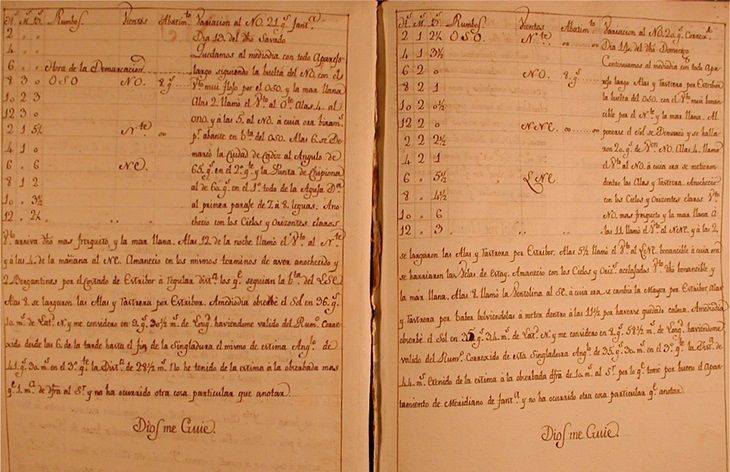 H.ˢ M.ˢ B.ˢ Rumbos. Vientos Abatim.ᵗᵒ Variacion al NO. 21 g.ˢ
2
Dia 13. del Savado
4
Quedamos al mediodia con todo Aparejo
6 Obra de la Demarcacion
largo siguiendo la buelta del NO. con el
8 3 0 OSO NO. 8 g.ˢ
V.ᵗᵒ mui flojo por el OSO. y la mar llana
10 2 3
Alas 2. llamò el V.ᵗᵒ al O.ᵗᵉ Alas 4. al
12 3 0
ONO, y à las 5. al NO. à cuia ora
2 1 5½ N.ᵗᵉ
abante en b.ᵗᵃ del OSO. Alas 6. se De=
4 1 0
marcò la Ciudad de Cadiz al Angulo de
6 6 NE.
65. g.ˢ en el 2.º q.ᵗᵉ y la Punta de Chipiona
8 1 2
al de 60. g.ˢ en el 1.º toda de la Aguja
10 3½
al primera paraje de 7. à 8. leguas. Ano=
12 2½
checio con los Cielos y Orizontes claros
V.ᵗᵒ arriva mas fresquito, y la mar llana. Alas 12. de la noche llamò el V.ᵗᵒ al N.ᵗᵉ
y à las 4. de la mañana al NE. Amanecio en los mismos terminos de aver anochecido y
2. Bergantines por el Costado de Estribor à regular dist.ᵃ los q.ᵉ seguian la b.ᵗᵃ del LSE.
Alas 8. se largaron las Alas y Rastrera por Estribor. Amediodia observè el Sol en 36. g.ˢ
10. m.ˢ de Lat.ᵈ N. y me considero en 9. g.ˢ 30½ m.ˢ de Long.ᵈ haviendome valido del Rum.º Corre=
xido desde las 6. de la tarde hasta el fin de la Singladura el mismo de estima Ang.º de
41. g.ˢ 30. m.ˢ en el 3.º q.ᵗᵉ la Dist.ᵃ de 28½ m.ˢ No he tenido de la estima à la obserbada mas
q.ᵉ 1. m.ᵃ de dfra al S.ʳ y no ha ocurrido otra cosa particular que anotar.
Dios me Guie.
H.ˢ M.ˢ B.ˢ Rumbos. Vientos Abatim.ᵗᵒ Variacion al NO. 20 g.ˢ
2 1 2½ OSO N.ᵗᵉ
Dia 14. del Domingo
4 1 3½
Continuamos al mediodia con todo Apa=
6 2 0 NO. 8 g.ˢ
rejo largo Alas y Rastrera por Estribor
8 2 1
la buelta del OSO. con el V.ᵗᵒ mui bonan=
10 2 0½
cible por el N.ᵗᵉ y la mar llana. Al
12 2 0 NNE.
ponerse el Sol se Demarcò y se halla=
2 2 2½
ron 20. g.ˢ de NO. Alas 4. llamò
4 2 1
el V.ᵗᵒ al NO. à cuia ora se metieron
6 5½ LNE.
dentro las Alas y Rastrera. Anochecio
8 4½
con los Cielos y Orizontes claros V.ᵗᵒ
10 6
NO. mas fresquito y la mar llana. A
12 3
las 11. llamò el V.ᵗᵒ al NNE. y à las 2.
se largaron las Alas y Rastrera por Estribor. Alas 5½ llamò el V.ᵗᵒ al LNE. bonancible à cuia ora
se harriaron las Velas de Estay. Amanecio con los Cielos y Oriz.ˢ acelajados V.ᵗᵒ bonancible y
la mar llana. Alas 8. llamò la Ventolina al SE. à cuia ora se cambiò la Mayor por Estribor, Alas
y Rastrera por babor bolviendolas à meter dentro à las 11½ por haverse quedado calma. Amediodia
observè el Sol en 35 g.ˢ 24. m.ˢ de Lat.ᵈ N. y me considero en 8. g.ˢ 58½ m.ˢ de Long.ᵈ haviendome
valido del Rum.º Correxido de esta Singladura Ang.º de 35. g.ˢ 30. m.ˢ en el 3.º q.ᵗᵉ la Dist.ᵃ de
44. m.ˢ tenido de la estima à la obserbada dfra de 10. m.ˢ al S.ʳ por lo q.ᵉ tomè por bueno el Apar=
tamiento de Meridiano de fant.ᵃ y no ha ocurrido otra cosa particular q.ᵉ anotar.
Dios me Guie.